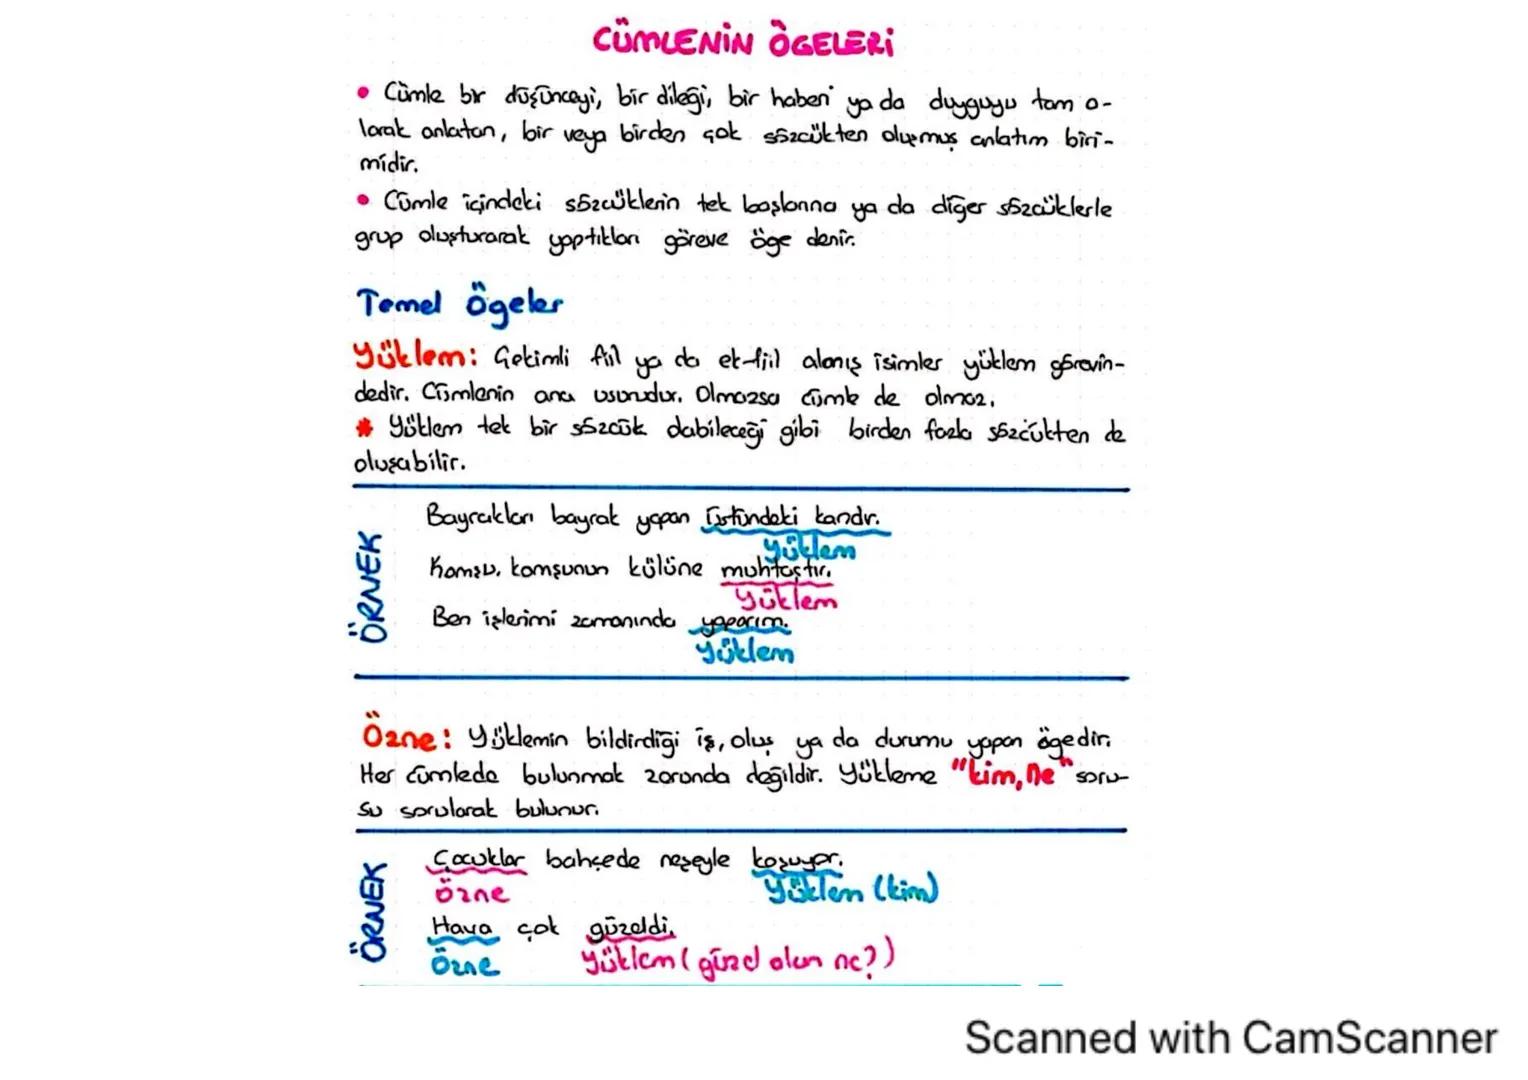 CÜMLENİN ÖGELERİ
• Cümle bir düşünceyi, bir dileği, bir haberi ya da duyguyu tam o-
larak anlatan, bir veya birden çok sözcükten oluşmuş anlatım biri-
midir.
• Cümle içindeki sözcüklerin tek başlarına ya da diğer sözcüklerle
grup oluşturarak yaptıkları göreve öge denir.
Temel Ögeler
Yüklem: Çekimli fiil ya da ek-fiil almış isimler yüklem görevin-
dedir. Cümlenin ana usurudur. Olmazsa cümle de olmaz.
* Yüklem tek bir sözcük olabileceği gibi birden fazla sözcükten de
oluşabilir.
ÖRNEK
Bayrakları bayrak yapan üstündeki kandır.
Yüklem
Komşu, komşunun külüne muhtaçtır.
Yüklem
Ben işlerimi zamanında yaparım.
Yüklem
Özne: Yüklemin bildirdiği iş, oluş ya da durumu yapan ögedir.
Her cümlede bulunmak zorunda değildir. Yükleme "kim, ne" soru-
su sorularak bulunur.
ÖRNEK
Çocuklar bahçede neşeyle koşuyor.
Özne Yüklem (kim)
Hava çok güzeldi.
Özne Yüklem (güzel olan ne?)
Scanned with CamScanner